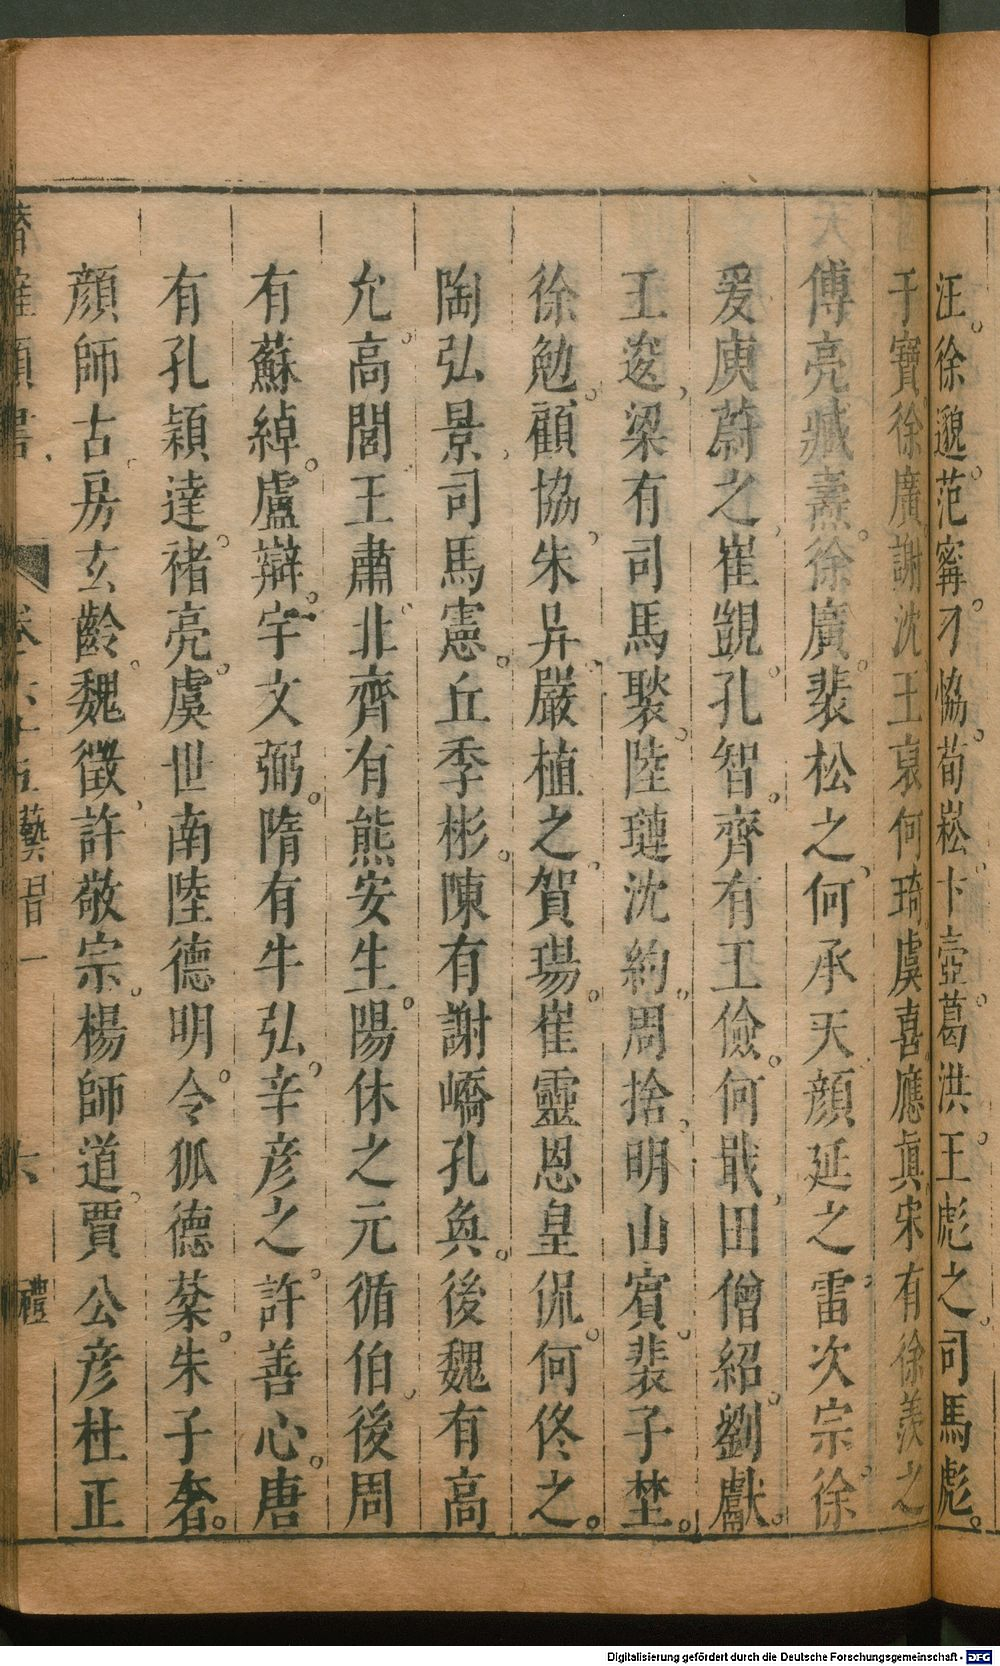 汪徐邈范甯刁恊荀崧卞壺葛洪王彪之司馬彪
于寶徐廣謝沈王裒何琦虞喜應眞宋有徐羨之
傅亮臧燾徐廣裴松之何承天顔延之雷次宗徐
爰庾蔚之崔覬孔智齊有王儉何戢田僧紹劉獻
王逡梁有司馬褧陸璉沈約周捨明山賓裴子埜
徐勉顧協朱异嚴植之賀瑒崔靈恩皇侃何佟之
陶弘景司馬憲丘季彬陳有謝嶠孔奐後魏有高
允高閭王肅北齊有熊安生陽休之元循伯後周
有蘇綽盧辯宇文弼隋有牛弘辛彦之許善心唐
有孔穎達褚亮虞世南陸德明令狐德棻朱子奢
顔師古房玄齡魏徵許敬宗楊師道賈公彦杜正
卷 藝 一 六 禮
Digitalisierung gefördert durch die Deutsche Forschungsgemeinschaft - DFG